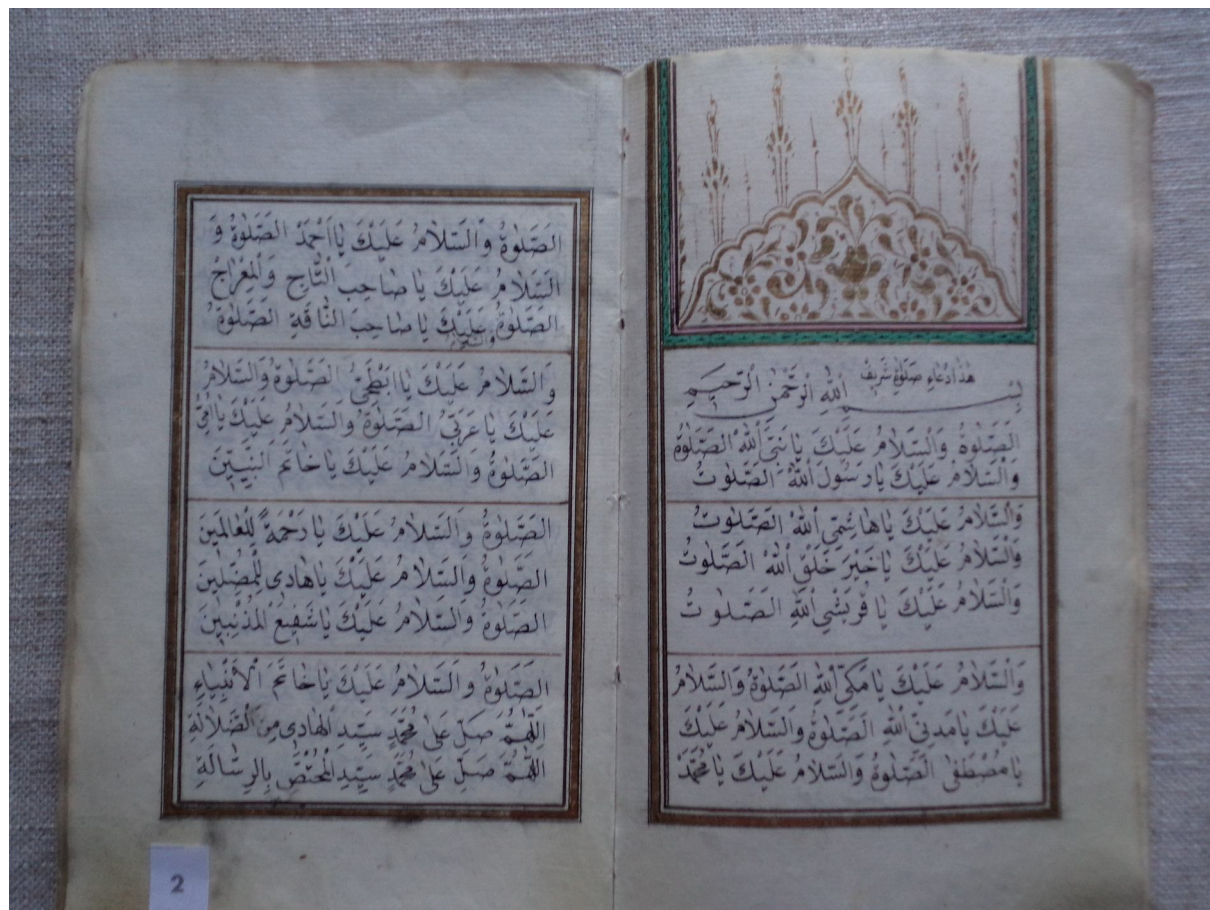 هذا دعاء صلوة شريف
بسم الله الرحمن الرحيم
الصلوة والسلام عليك يا نبي الله الصلوة
والسلام عليك يا رسول الله الصلوت
والسلام عليك يا هاشمي الله الصلوت
والسلام عليك يا خير خلق الله الصلوت
والسلام عليك يا قريشي الله الصلوت
والسلام عليك يا مكي الله الصلوة والسلام
عليك يا مدني الله الصلوة والسلام عليك
يا مصطفى الصلوة والسلام عليك يا محمد
الصلوة والسلام عليك يا احمد الصلوة و
السلام عليك يا صاحب التاج والمعراج
الصلوة عليك يا صاحب الناقة الصلوة
والسلام
والسلام عليك يا ابطحي الصلوة والسلام
عليك يا عربي الصلوة والسلام عليك يا امي
الصلوة والسلام عليك يا خاتم النبيين
الصلوة والسلام عليك يا رحمة للعالمين
الصلوة والسلام عليك يا هادى للمضلين
الصلوة والسلام عليك يا شفيع المذنبين
الصلوة والسلام عليك يا خاتم الانبياء
اللهم صل على محمد سيد الهادى من الضلالة
اللهم صل على محمد سيد المختص بالرسالة
2